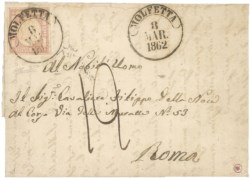 MOLFETTA
8
MAR.
1862
MOLFETTA
Al Nobil Uomo
Il Sig. Cavaliere Filippo Della
Al Corso Via N. 53
12
Roma